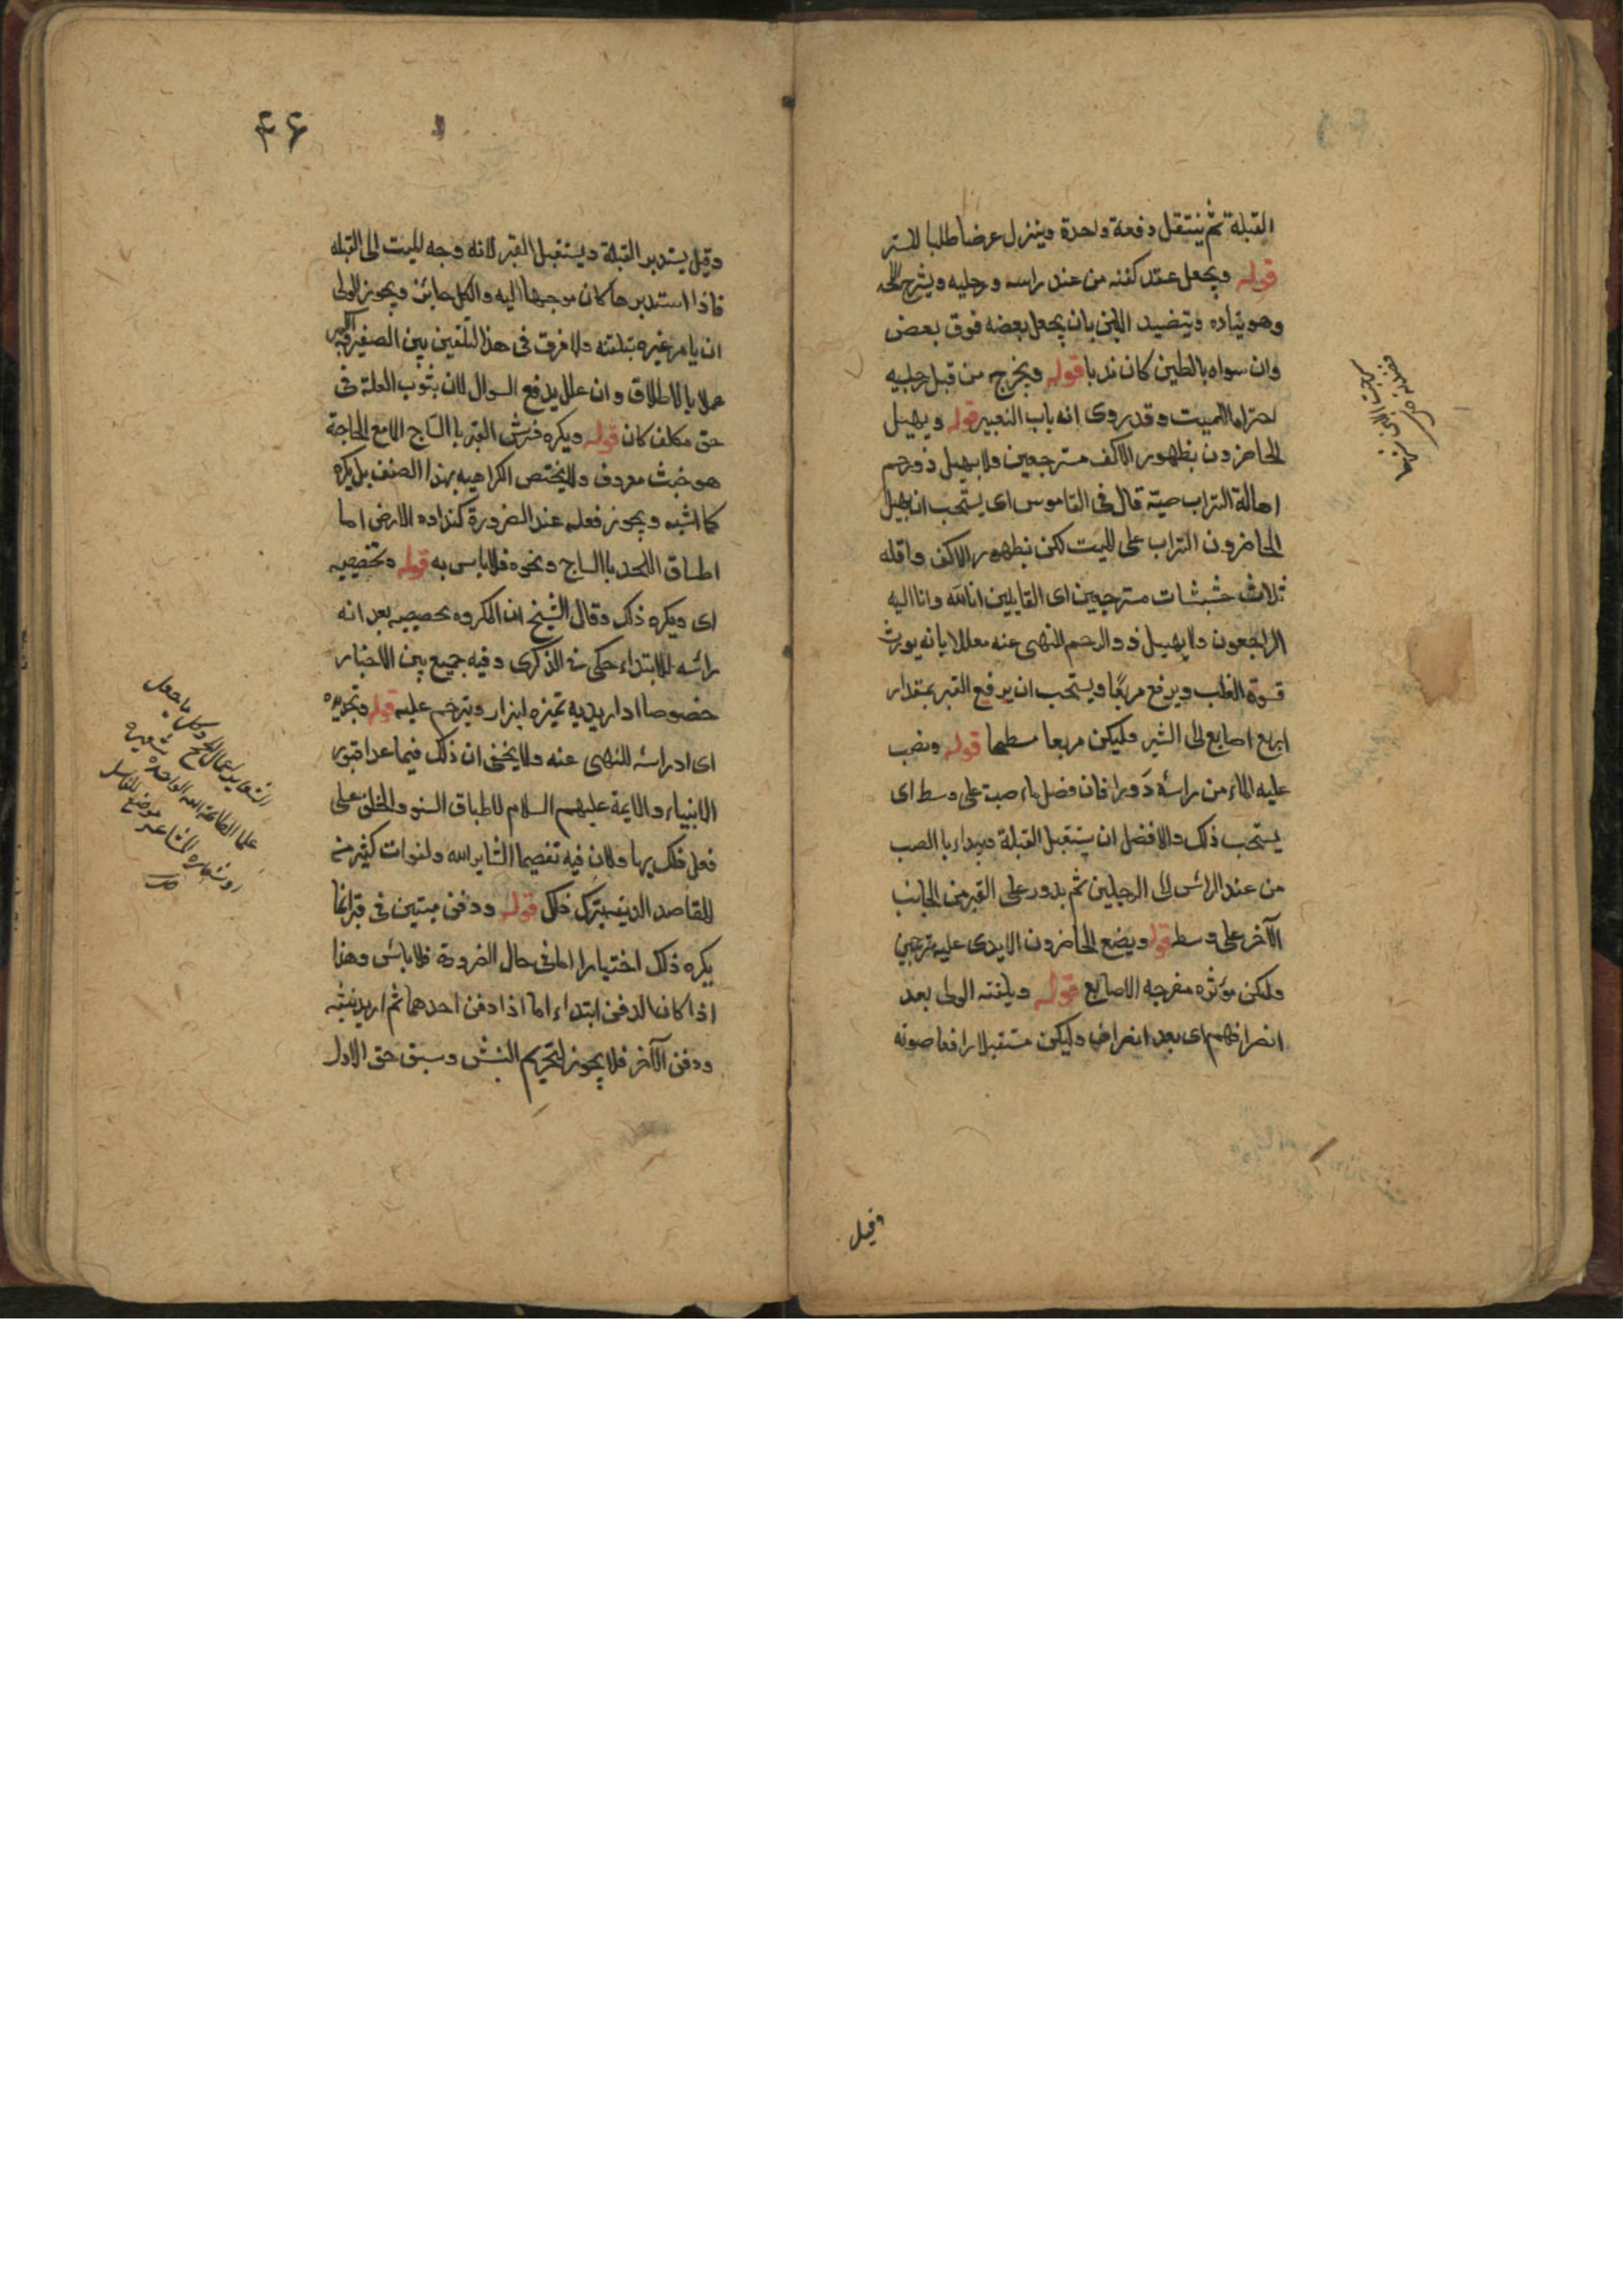 القبلة ثم ينتقل دفعة واحدة وينزل عرضا طلبا للستر
قوله ويجعل عقد كفنه من عند راسه ورجليه ويشرج اللحد
وهو بناده وتنضيد اللبن بان يجعل بعضه فوق بعض
وان سواه بالطين كان ندبا قوله ويخرج من قبل رجليه
احتراما للميت وقد روى انه باب القبر قوله ويهيل
الحاضرون بظهور الاكف مسترجعين ولا يهيل ذو رحم
اهالة التراب صبه قال فى القاموس اى يستحب ان يهيل
الحاضرون التراب على الميت لكن بظهور الاكف واقله
ثلاث حثيات مسترجعين اى القايلين انا لله وانا اليه
الراجعون ولا يهيل ذو الرحم للنهى عنه معللا بانه يورث
قسوة القلب ويرفع مربعا ويستحب ان يرفع القبر بمقدار
اربع اصابع الى الشبر وليكن مربعا مسطحا قوله وصب
عليه الماء من راسه دورا فان فضل ماء صب على وسط اى
يستحب ذلك والافضل ان يستقبل القبلة ويبداء با الصب
من عند الراس الى الرجلين ثم يدور على القبر من الجانب
الآخر على وسط قوله ويضع الحاضرون الايدى عليه مترحمين
ولكن مؤثره مفرجه الاصابع قوله ويلقنه الولى بعد
انصرافهم اى بعد انصراف وليكن مستقبلا رافعا صوته
وقيل
۴۶
وقيل يستدبر القبلة ويستقبل القبر لانه وجه الميت الى القبله
فاذا استدبرها كان موجها اليه والكل جائز ويجوز للولى
ان يامر غيره بتلقنه ولا فرق فى هذا التلقين بين الصغير والكبير
عملا بالاطلاق وان علل يدفع السوال لان بثوب العلة فى
حق مكلف كان قوله ويكره فرش القبر با الساج الا مع الحاجة
هو خبث معروف ولا يختص الكراهيه بهذا الصنف بل يكره
كما اشبه ويجوز فعله عند الضرورة كنداده الارض اما
اطباق اللحد با الساج ونحوه فلا باس به قوله وتخصيصه
اى ويكره ذلك وقال الشيخ ان المكروه تحصيصه بعد انه
راسه للابتداء حكى فى الذكرى وفيه جمع بين الاخبار
خصوصا اذا اريد به تميزه ليزار ويترحم عليه قوله وتجديده
اى اندراسه للنهى عنه ولا يخفى ان ذلك فيما عدا قبور
الانبياء والايمة عليهم السلام لاطباق السنو والخلق على
فعل ذلك بها ولان فيه تعصيما الشايرالله ولفوات كثير من
المقاصد الدينيه بترك ذلك قوله ودفن ميتين فى قبر انما
يكره ذلك اختيارا اما فى حال الضرورة فلا باس وهذا
اذا كان الدفن ابتداء اما اذا دفن احدهما ثم اريد نبشه
ودفن الآخر فلا يجوز لتحريم النبش وسبق حق الاول